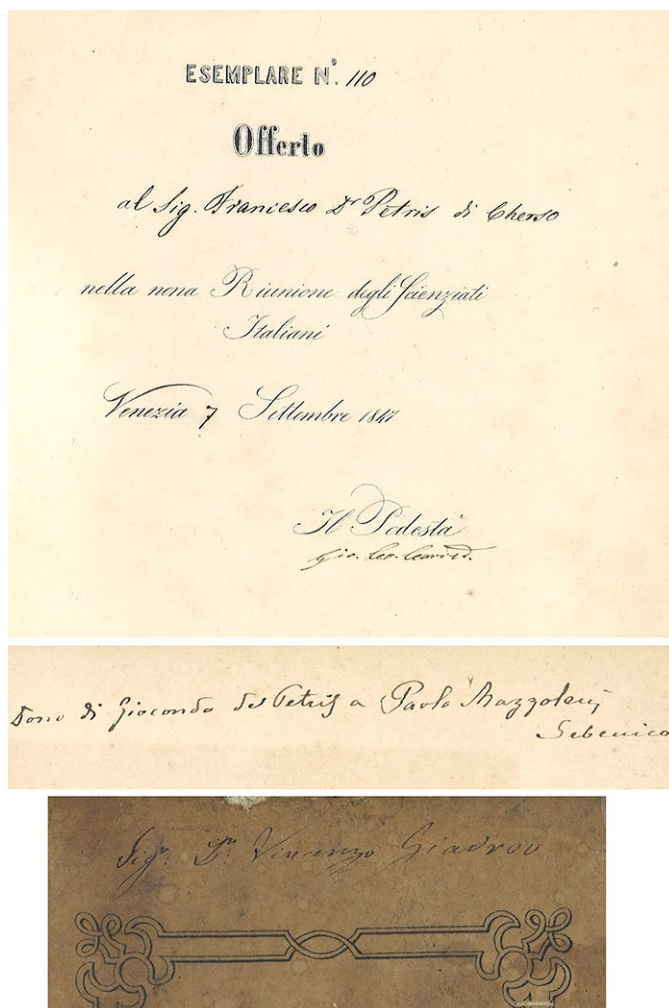 ESEMPLARE N.° 110
Offerto
al Sig. Francesco Dr Petris di Cherso
nella nona Riunione degli Scienziati
Italiani
Venezia 7 Settembre 1847
Il Podestà
Gio.
Dono di Giocondo de Petris a Paolo Mazzoleni
Sebenico
Sigr. Dn Vincenzo Giadrov